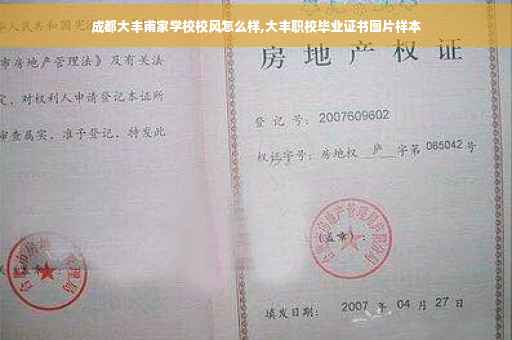 成都大丰甫家学校校风怎么样,大丰职校毕业证书图片样本
人民共和国宪
市房地产管理法》及有关法
定，对权利人申请登记本证所
审查属实，准予登记，特发此
房地产权证
登记号：2007609602
权证字号：房地权 庐 字第 065042 号
(盖章)：
填发日期： 2007 年 04 月 27 日